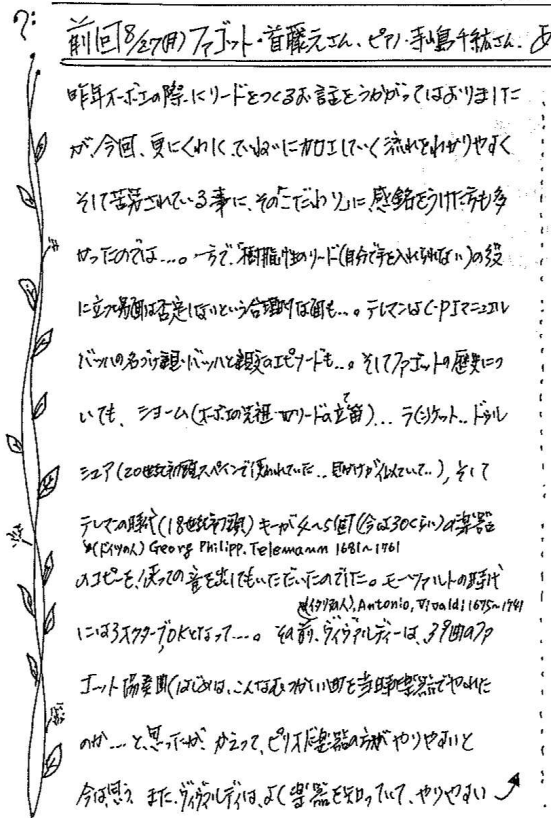 前回8/27(月)ファゴット・首藤元さん、ピアノ・寺嶋千紘さん、あ
昨年オーボエの際にリードをつくるお話をうかがってはおりました
が、今回、更にくわしく、ていねいに加工していく流れをわかりやすく
そして苦労されている事に、その「こだわり」に感銘をうけた方も多
かったのでは…。一方で、「樹脂性のリード(自分で手を入れられない)の役
に立つ場面は否定しないという合理的な面も…。テレマンはC・P・Iマニュエル
バッハの名づけ親・バッハと親交のエピソードも…。そしてファゴットの歴史につ
いても、ショーム(オーボエの先祖・のリードの立て笛)… ラケット.. ドゥル
シュア(20世紀初頭スペインで使われていた.. 見かけが似ていて..)、そして
テレマンの時代(18世紀初頭)キーが4〜5個(今は30くらい)の楽器
(ドイツの人) Georg Philipp. Telemann 1681〜1761
のコピーを使っての音を出してもいただいたのでした。モーツァルトの時代
(イタリア人), Antonio, Vivaldi 1675〜1741
には3オクターブOKとなって…。その前、ヴィヴァルディーは、39曲のファ
ゴット協奏曲(はじめは、こんなむつかしい曲を当時の楽器でやれた
のか…と、思ったが、かえって、ピリオド楽器の方がやりやすいと
今は思う。また、ヴィヴァルディは、よく楽器を知っていて、やりやすい